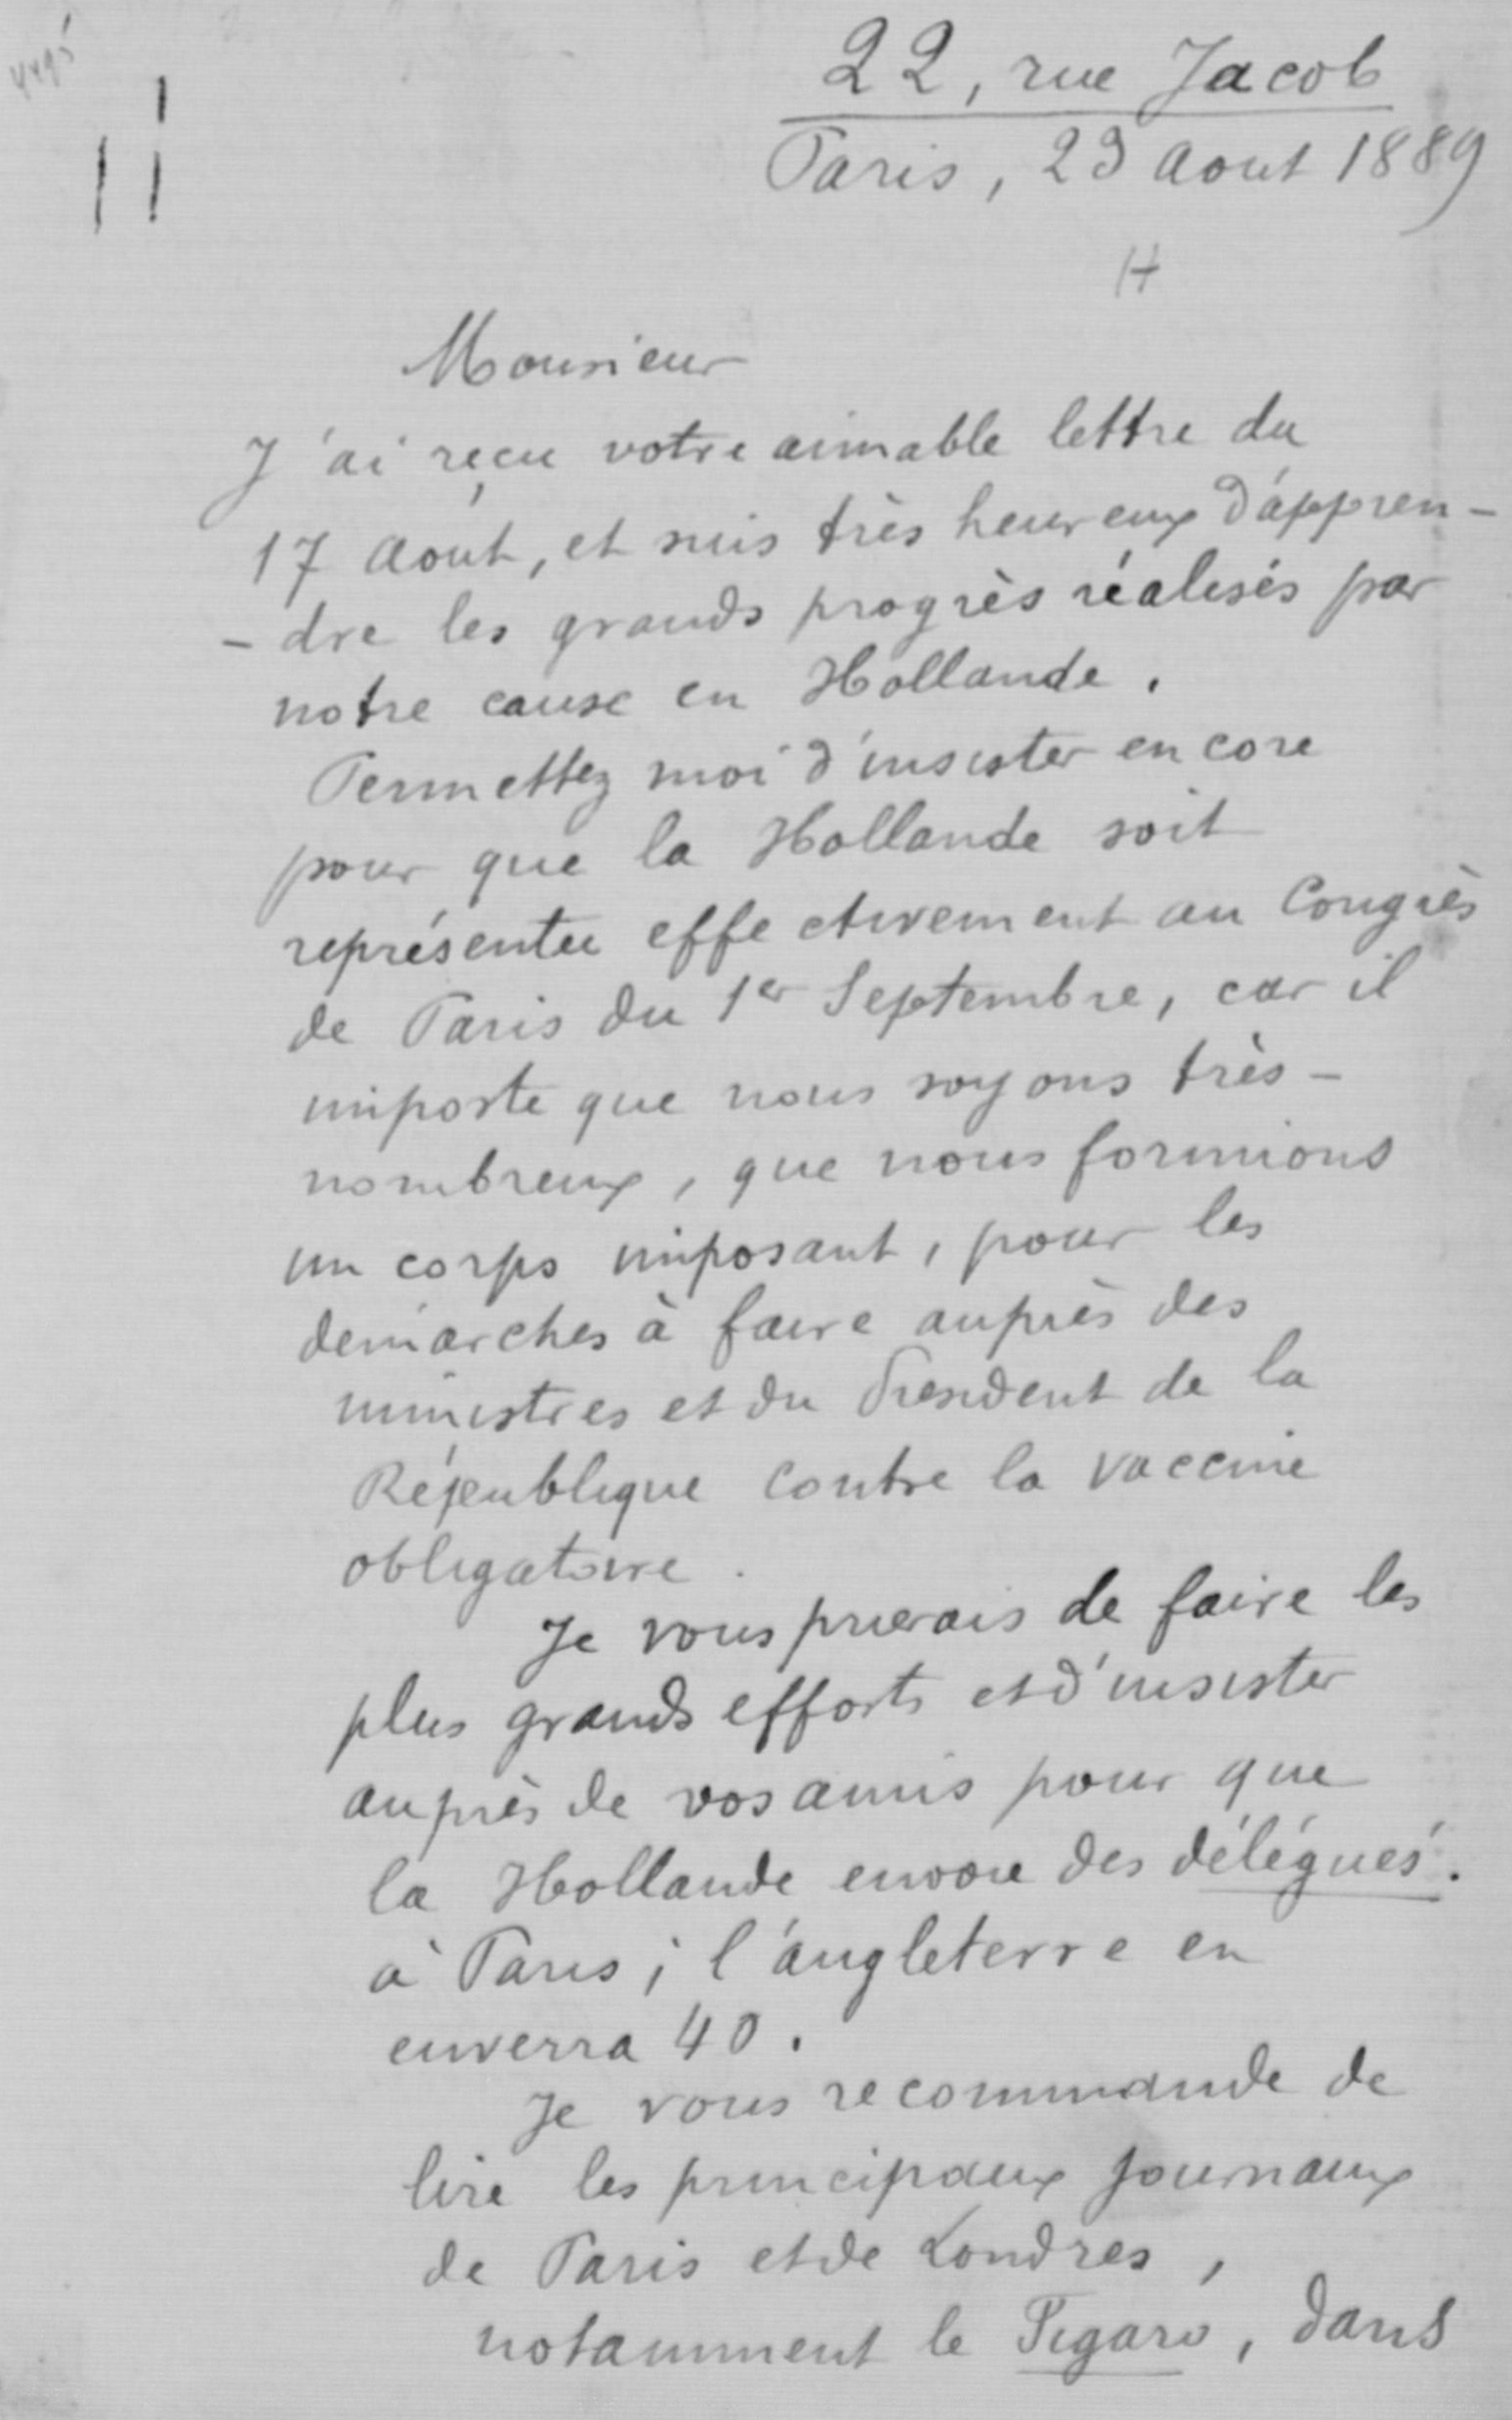 22, rue Jacob
Paris, 23 Aout 1889
Monsieur
J'ai reçu votre aimable lettre du
17 Août, et suis très heureux d'appren-
-dre les grands progrès réalisés par
notre cause en Hollande.
Permettez moi d'insister encore
pour que la Hollande soit
représentée effectivement au Congrès
de Paris du 1er Septembre, car il
importe que nous soyons très-
nombreux, que nous formions
un corps imposant, pour les
démarches à faire auprès des
ministres et du President de la
République contre la vaccine
obligatoire.
Je vous prierais de faire les
plus grands efforts et d'insister
auprès de vos amis pour que
la Hollande envoie des délégués.
à Paris; l'angleterre en
enverra 40.
Je vous recommande de
lire les principaux journaux
de Paris et de Londres,
notamment le Figaro, dans